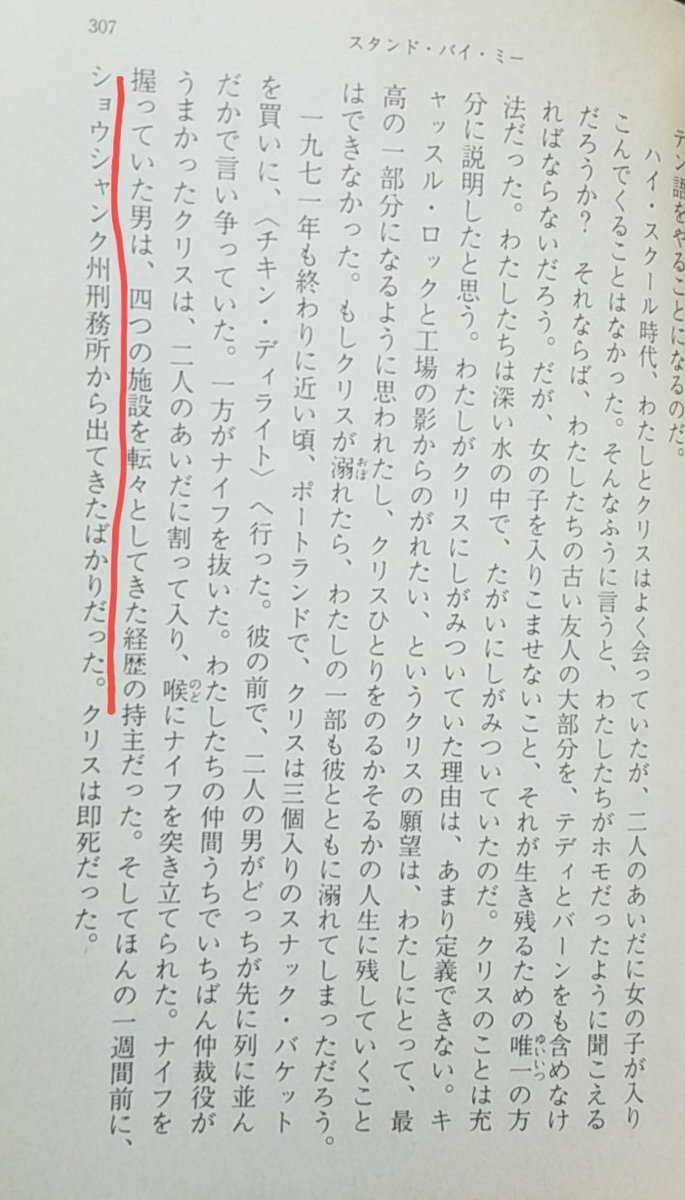 307
スタンド・バイ・ミー
テン語をやることになるのだ。
ハイ・スクール時代、わたしとクリスはよく会っていたが、二人のあいだに女の子が入り
こんでくることはなかった。そんなふうに言うと、わたしたちがホモだったように聞こえる
だろうか？ それならば、わたしたちの古い友人の大部分を、テディとバーンをも含めなけ
ればならないだろう。だが、女の子を入りこませないこと、それが生き残るための唯一の方
法だった。わたしたちは深い水の中で、たがいにしがみついていたのだ。クリスのことは充
分に説明したと思う。わたしがクリスにしがみついていた理由は、あまり定義できない。キ
ャッスル・ロックと工場の影からのがれたい、というクリスの願望は、わたしにとって、最
高の一部分になるように思われたし、クリスひとりをのるかそるかの人生に残していくこと
はできなかった。もしクリスが溺れたら、わたしの一部も彼とともに溺れてしまっただろう。
一九七一年も終わりに近い頃、ポートランドで、クリスは三個入りのスナック・バケット
を買いに、〈チキン・ディライト〉へ行った。彼の前で、二人の男がどっちが先に列に並ん
だかで言い争っていた。一方がナイフを抜いた。わたしたちの仲間うちでいちばん仲裁役が
うまかったクリスは、二人のあいだに割って入り、喉にナイフを突き立てられた。ナイフを
握っていた男は、四つの施設を転々としてきた経歴の持主だった。そしてほんの一週間前に、
ショウシャンク州刑務所から出てきたばかりだった。クリスは即死だった。